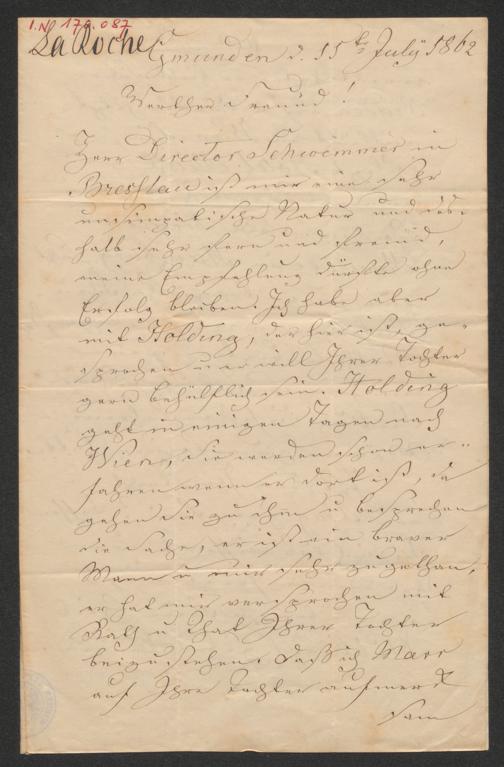 I.N 179.087
La Roche
Gmunden d. 15ten July 1862
Werther Freund!
Herr Director Schwemmer in
Bresslau ist mir eine sehr
unsimpatische Natur und des-
halb sehr fern und fremd,
meine Empfehlung dürfte ohne
Erfolg bleiben. Ich habe aber
mit Holding, der hier ist, ge-
sprochen u er will Ihrer Tochter
gern behülflich sein. Holding
geht in einigen Tagen nach
Wien, Sie werden schon er-
fahren wenn er dort ist, da
gehen Sie zu ihm u besprechen
die Sache, er ist ein braver
Mann u mir sehr zugethan,
er hat mir versprochen mit
Rath u That Ihrer Tochter
beizustehen. Daß ich Marr
auf Ihre Tochter aufmerk
sam